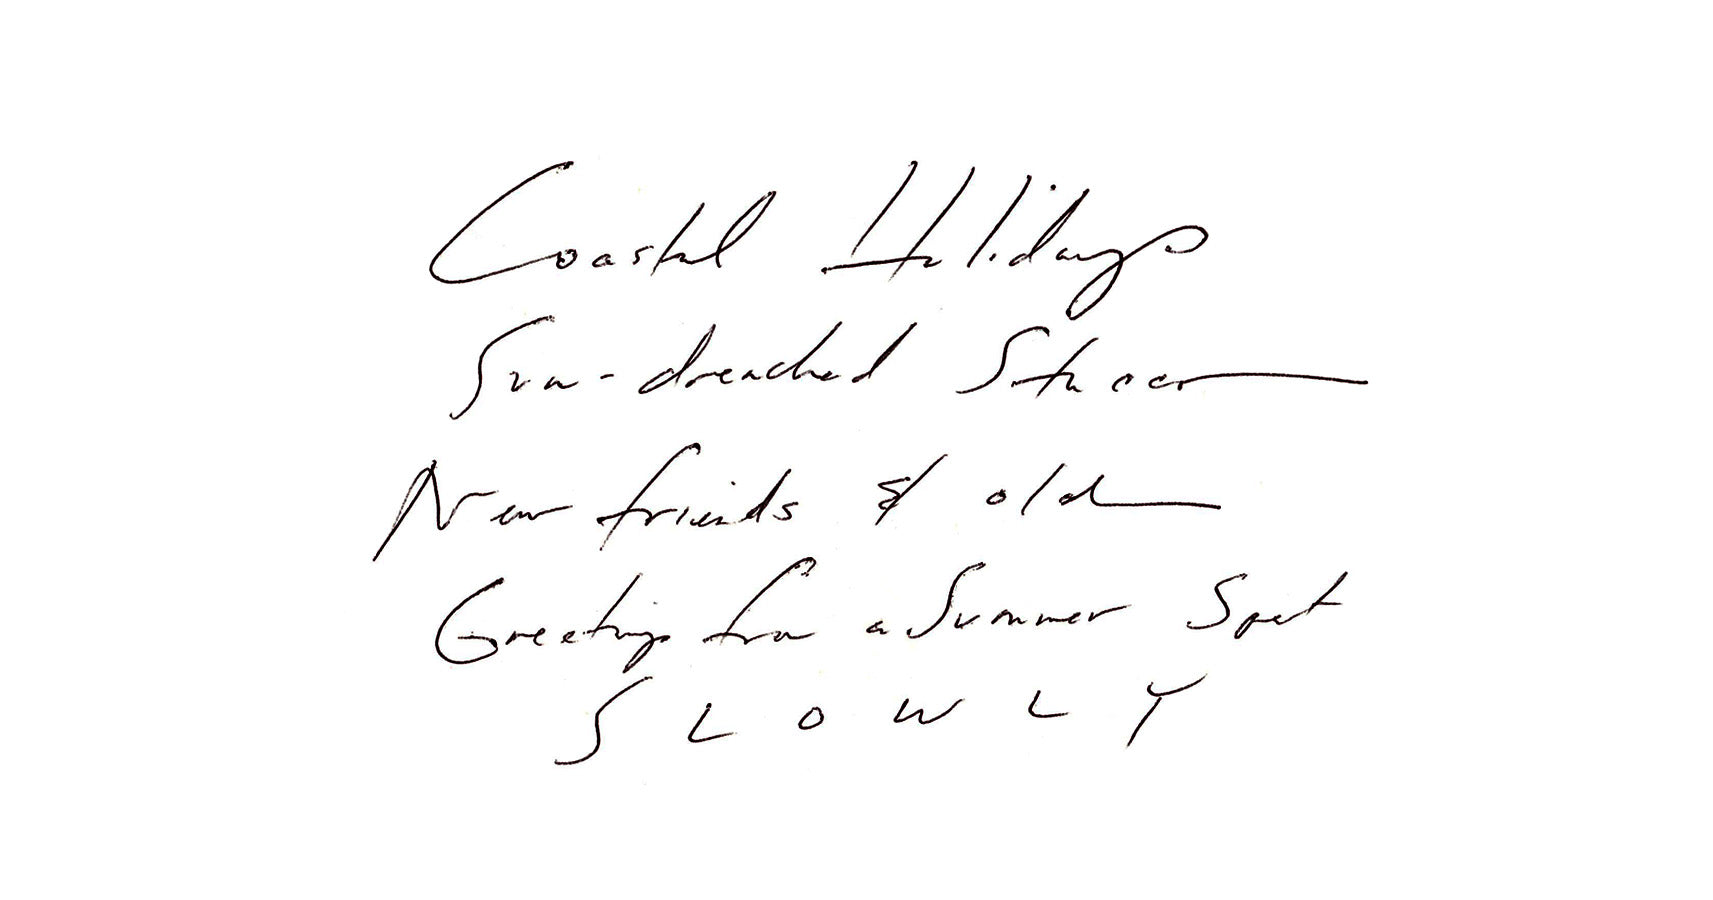 Coastal Holidays
Sun-drenched Stucco
New friends & old
Greetings from a Summer Spot
SLOWLY